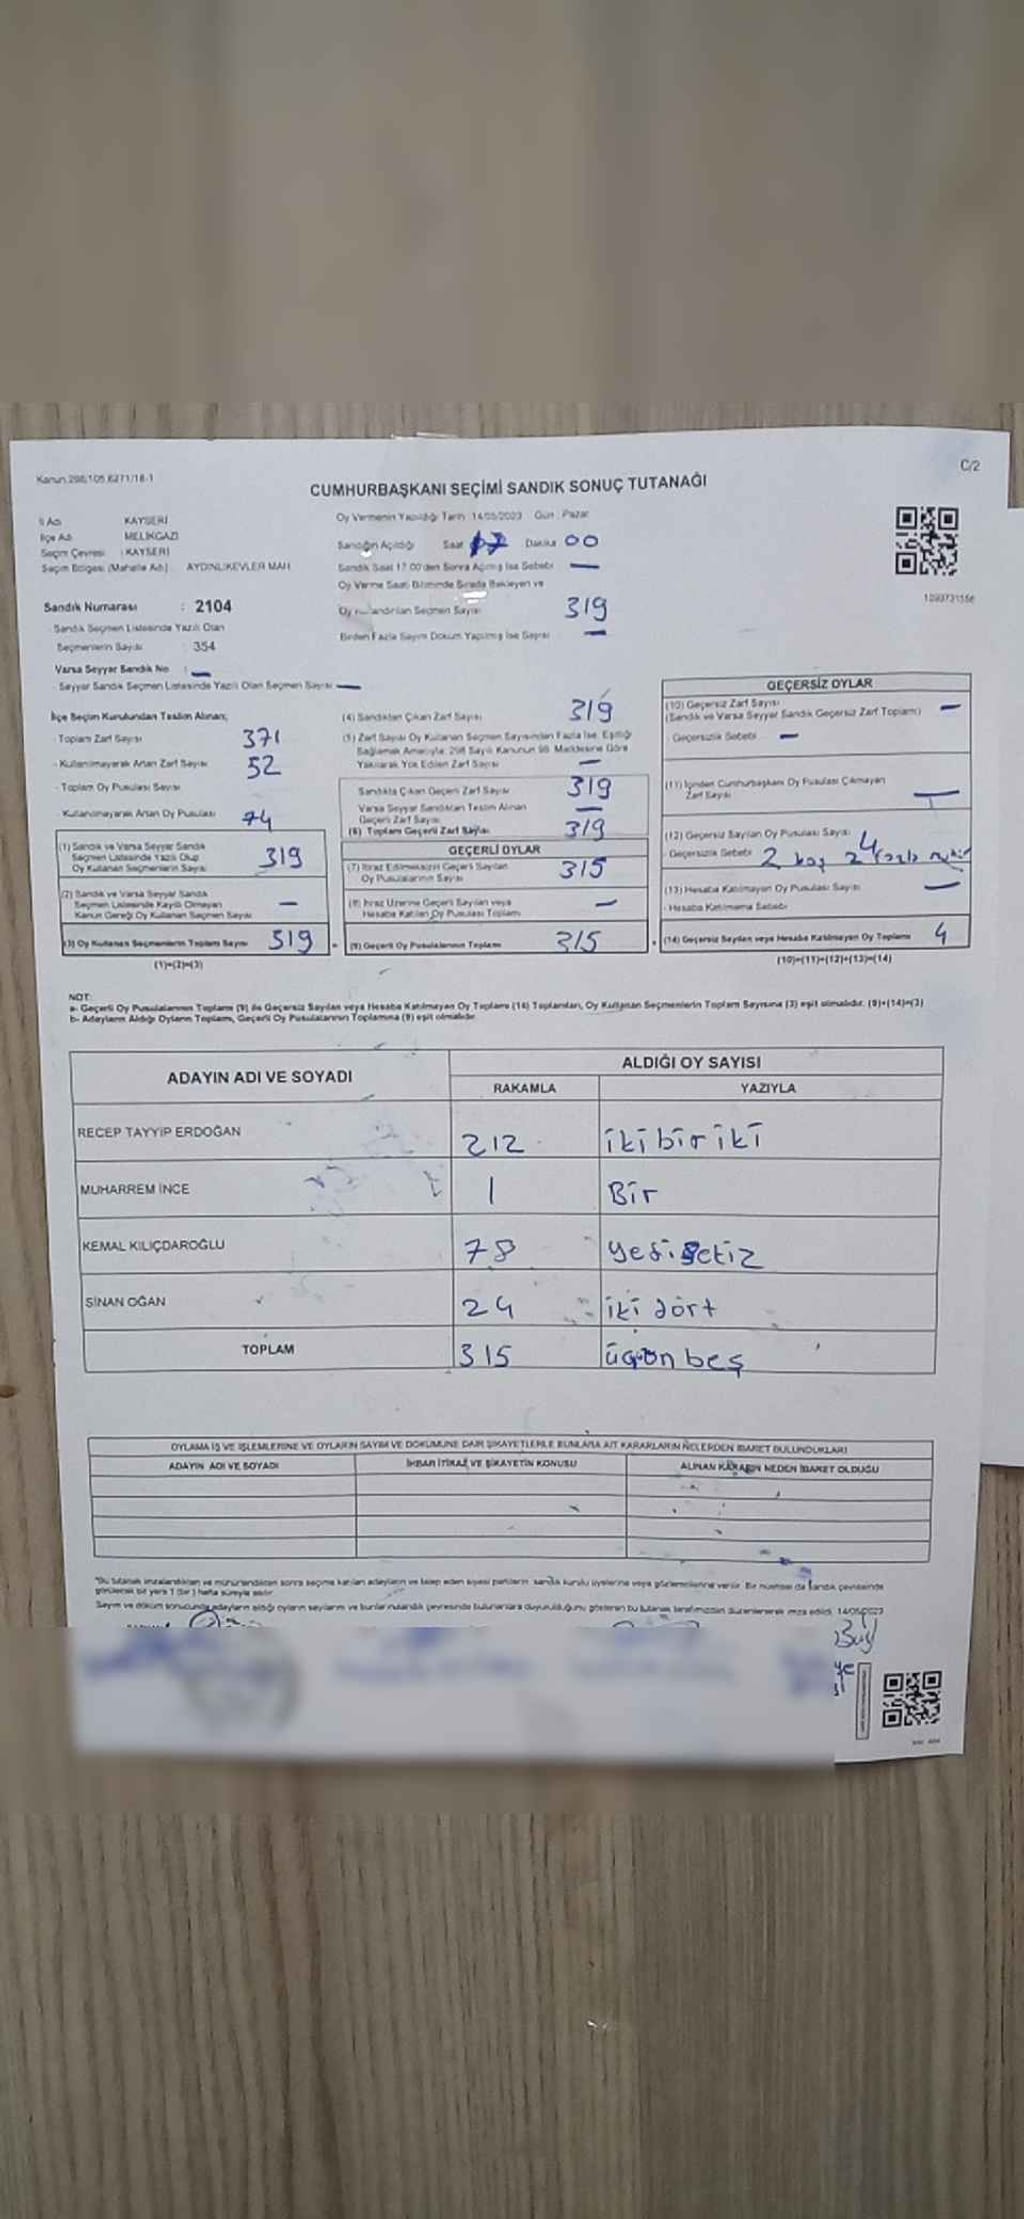 Kanun 298/105 6271/18-1
C/2
CUMHURBAŞKANI SEÇİMİ SANDIK SONUÇ TUTANAĞI
İl Adı KAYSERİ
İlçe Adı MELİKGAZİ
Seçim Çevresi : KAYSERİ
Seçim Bölgesi (Mahalle Adı) AYDINLIKEVLER MAH
Sandık Numarası : 2104
Sandık Seçmen Listesinde Yazılı Olan
Seçmenlerin Sayısı : 354
Varsa Seyyar Sandık No : —
Seyyar Sandık Seçmen Listesinde Yazılı Olan Seçmen Sayısı —
Oy Vermenin Yapıldığı Tarih 14/05/2023 Gün Pazar
Sandığın Açıldığı Saat 17 Dakika 00
Sandık Saat 17.00'den Sonra Açılmış İse Sebebi —
Oy Verme Saati Bitiminde Sırada Bekleyen ve
Oy Kullandırılan Seçmen Sayısı 319
Birden Fazla Sayım Döküm Yapılmış İse Sayısı —
1093731556
İlçe Seçim Kurulundan Teslim Alınan;
Toplam Zarf Sayısı 371
Kullanılmayarak Artan Zarf Sayısı 52
Toplam Oy Pusulası Sayısı
Kullanılmayarak Artan Oy Pusulası 74
(1) Sandık ve Varsa Seyyar Sandık
Seçmen Listesinde Yazılı Olup
Oy Kullanan Seçmenlerin Sayısı 319
(2) Sandık ve Varsa Seyyar Sandık
Seçmen Listesinde Kayıtlı Olmayan
Kanun Gereği Oy Kullanan Seçmen Sayısı —
(3) Oy Kullanan Seçmenlerin Toplam Sayısı 319
(1)+(2)=(3)
(4) Sandıktan Çıkan Zarf Sayısı 319
(5) Zarf Sayısı Oy Kullanan Seçmen Sayısından Fazla İse, Eşitliği
Sağlamak Amacıyla, 298 Sayılı Kanunun 98. Maddesine Göre
Yakılarak Yok Edilen Zarf Sayısı —
Sandıkta Çıkan Geçerli Zarf Sayısı 319
Varsa Seyyar Sandıktan Teslim Alınan
Geçerli Zarf Sayısı —
(6) Toplam Geçerli Zarf Sayısı 319
GEÇERLİ OYLAR
(7) İtiraz Edilmeksizin Geçerli Sayılan
Oy Pusulalarının Sayısı 315
(8) İtiraz Üzerine Geçerli Sayılan veya
Hesaba Katılan Oy Pusulası Toplamı —
(9) Geçerli Oy Pusulalarının Toplamı 315
GEÇERSİZ OYLAR
(10) Geçersiz Zarf Sayısı
(Sandık ve Varsa Seyyar Sandık Geçersiz Zarf Toplamı) —
Geçersizlik Sebebi —
(11) İçinden Cumhurbaşkanı Oy Pusulası Çıkmayan
Zarf Sayısı —
(12) Geçersiz Sayılan Oy Pusulası Sayısı 4
Geçersizlik Sebebi 2 boş 2 fazla mühür
(13) Hesaba Katılmayan Oy Pusulası Sayısı —
Hesaba Katılmama Sebebi
(14) Geçersiz Sayılan veya Hesaba Katılmayan Oy Toplamı 4
(10)+(11)+(12)+(13)=(14)
NOT:
a- Geçerli Oy Pusulalarının Toplamı (9) ile Geçersiz Sayılan veya Hesaba Katılmayan Oy Toplamı (14) Toplamları, Oy Kullanan Seçmenlerin Toplam Sayısına (3) eşit olmalıdır. (9)+(14)=(3)
b- Adayların Aldığı Oyların Toplamı, Geçerli Oy Pusulalarının Toplamına (9) eşit olmalıdır.
ADAYIN ADI VE SOYADI
ALDIĞI OY SAYISI
RAKAMLA YAZIYLA
RECEP TAYYİP ERDOĞAN 212 iki bir iki
MUHARREM İNCE 1 Bir
KEMAL KILIÇDAROĞLU 78 yedi sekiz
SİNAN OĞAN 24 iki dört
TOPLAM 315 üç on beş
OYLAMA İŞ VE İŞLEMLERİNE VE OYLARIN SAYIM VE DÖKÜMÜNE DAİR ŞİKAYETLERLE BUNLARA AİT KARARLARIN NELERDEN İBARET BULUNDUKLARI
ADAYIN ADI VE SOYADI İHBAR İTİRAZ VE ŞİKAYETİN KONUSU ALINAN KARARIN NEDEN İBARET OLDUĞU
*Bu tutanak imzalandıktan ve mühürlendikten sonra seçime katılan adayların ve talep eden siyasi partilerin sandık kurulu üyelerine veya gözlemcilerine verilir. Bir nüshası da sandık çevresinde
görülecek bir yere 1 (bir) hafta süreyle asılır.
Sayım ve döküm sonucunda adayların aldığı oyların sayılarını ve bunların sandık çevresinde bulunanlara duyurulduğunu gösteren bu tutanak tarafımızdan düzenlenerek imza edildi. 14/05/2023